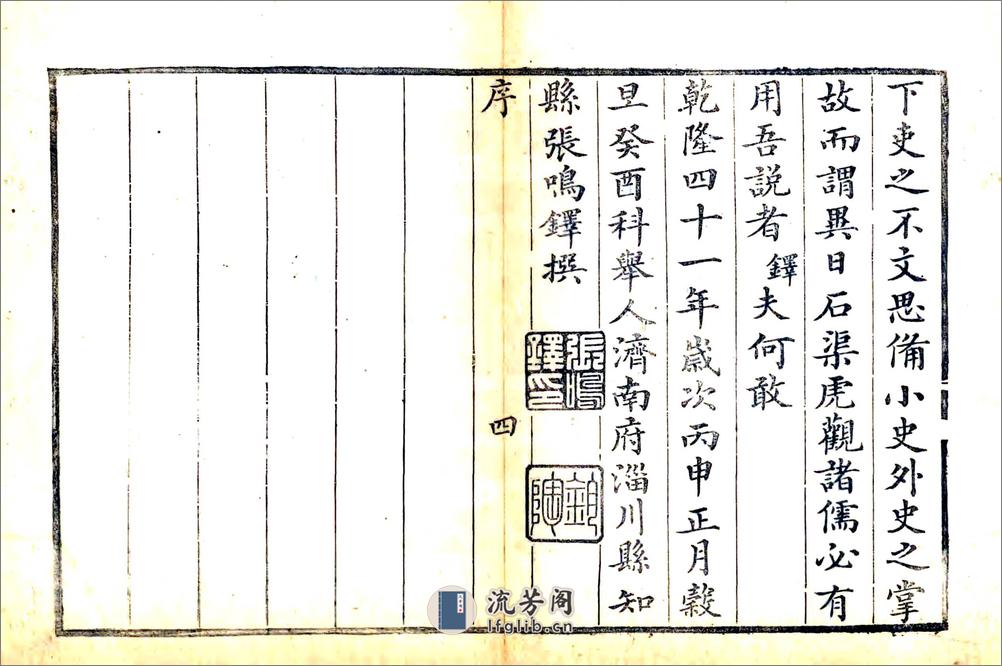 下吏之不文思備小史外史之掌
故而謂異日石渠虎觀諸儒必有
用吾說者鐸夫何敢
乾隆四十一年歲次丙申正月穀
旦癸酉科舉人濟南府淄川縣知
縣張鳴鐸撰
張鳴鐸印
序
四
流芳阁
lfglib.cn